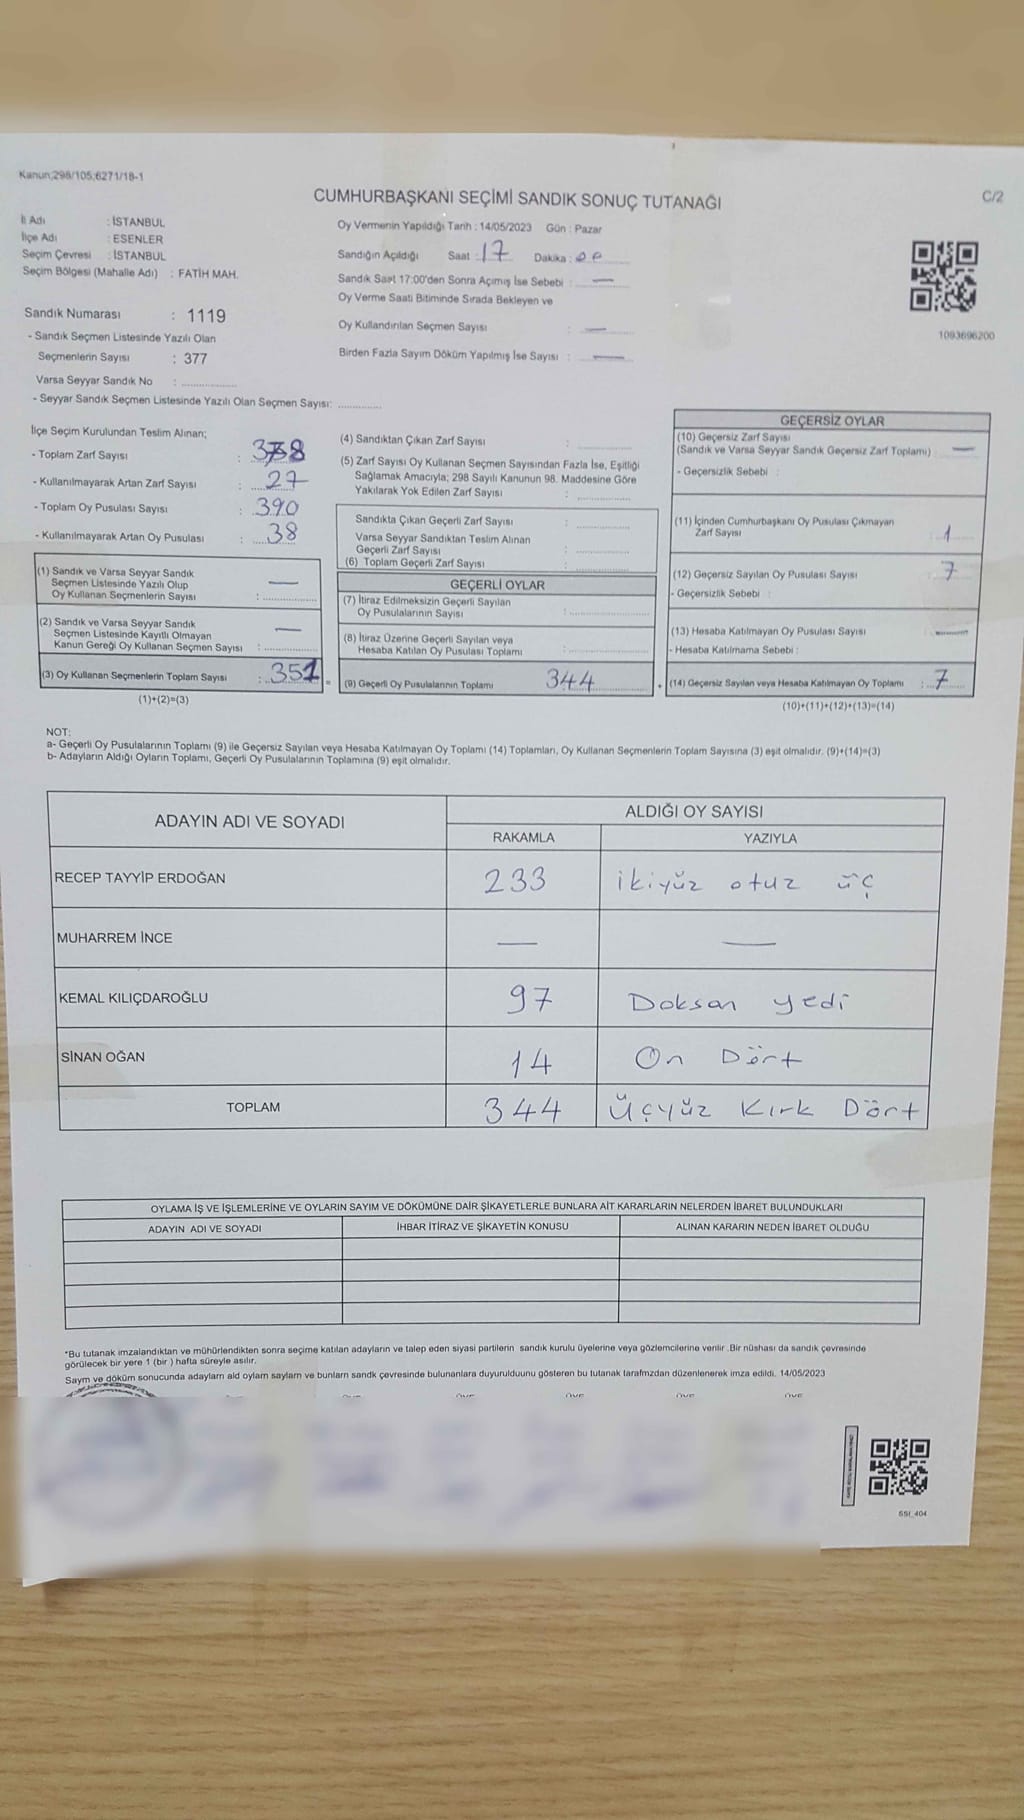 Kanun;298/105;6271/18-1
CUMHURBAŞKANI SEÇİMİ SANDIK SONUÇ TUTANAĞI
C/2
İl Adı : İSTANBUL
İlçe Adı : ESENLER
Seçim Çevresi : İSTANBUL
Seçim Bölgesi (Mahalle Adı) : FATİH MAH.
Sandık Numarası : 1119
- Sandık Seçmen Listesinde Yazılı Olan
Seçmenlerin Sayısı : 377
Varsa Seyyar Sandık No :
- Seyyar Sandık Seçmen Listesinde Yazılı Olan Seçmen Sayısı:
Oy Vermenin Yapıldığı Tarih : 14/05/2023 Gün : Pazar
Sandığın Açıldığı Saat : 17 Dakika : 00
Sandık Saat 17:00'den Sonra Açımış İse Sebebi : —
Oy Verme Saati Bitiminde Sırada Bekleyen ve
Oy Kullandırılan Seçmen Sayısı : —
Birden Fazla Sayım Döküm Yapılmış İse Sayısı : —
1093696200
İlçe Seçim Kurulundan Teslim Alınan;
- Toplam Zarf Sayısı :
- Kullanılmayarak Artan Zarf Sayısı : 27
- Toplam Oy Pusulası Sayısı : 390
- Kullanılmayarak Artan Oy Pusulası : 38
(1) Sandık ve Varsa Seyyar Sandık
Seçmen Listesinde Yazılı Olup
Oy Kullanan Seçmenlerin Sayısı : —
(2) Sandık ve Varsa Seyyar Sandık
Seçmen Listesinde Kayıtlı Olmayan
Kanun Gereği Oy Kullanan Seçmen Sayısı : —
(3) Oy Kullanan Seçmenlerin Toplam Sayısı : 351 =
(1)+(2)=(3)
(4) Sandıktan Çıkan Zarf Sayısı :
(5) Zarf Sayısı Oy Kullanan Seçmen Sayısından Fazla İse, Eşitliği
Sağlamak Amacıyla; 298 Sayılı Kanunun 98. Maddesine Göre
Yakılarak Yok Edilen Zarf Sayısı :
Sandıkta Çıkan Geçerli Zarf Sayısı :
Varsa Seyyar Sandıktan Teslim Alınan
Geçerli Zarf Sayısı :
(6) Toplam Geçerli Zarf Sayısı :
GEÇERLİ OYLAR
(7) İtiraz Edilmeksizin Geçerli Sayılan
Oy Pusulalarının Sayısı :
(8) İtiraz Üzerine Geçerli Sayılan veya
Hesaba Katılan Oy Pusulası Toplamı :
(9) Geçerli Oy Pusulalarının Toplamı 344 +
GEÇERSİZ OYLAR
(10) Geçersiz Zarf Sayısı
(Sandık ve Varsa Seyyar Sandık Geçersiz Zarf Toplamı) : —
- Geçersizlik Sebebi :
(11) İçinden Cumhurbaşkanı Oy Pusulası Çıkmayan
Zarf Sayısı : 1
(12) Geçersiz Sayılan Oy Pusulası Sayısı : 7
- Geçersizlik Sebebi :
(13) Hesaba Katılmayan Oy Pusulası Sayısı : —
- Hesaba Katılmama Sebebi :
(14) Geçersiz Sayılan veya Hesaba Katılmayan Oy Toplamı : 7
(10)+(11)+(12)+(13)=(14)
NOT:
a- Geçerli Oy Pusulalarının Toplamı (9) ile Geçersiz Sayılan veya Hesaba Katılmayan Oy Toplamı (14) Toplamları, Oy Kullanan Seçmenlerin Toplam Sayısına (3) eşit olmalıdır. (9)+(14)=(3)
b- Adayların Aldığı Oyların Toplamı, Geçerli Oy Pusulalarının Toplamına (9) eşit olmalıdır.
ADAYIN ADI VE SOYADI
ALDIĞI OY SAYISI
RAKAMLA YAZIYLA
RECEP TAYYİP ERDOĞAN 233 ikiyüz otuz üç
MUHARREM İNCE — —
KEMAL KILIÇDAROĞLU 97 Doksan yedi
SİNAN OĞAN 14 On Dört
TOPLAM 344 Üçyüz Kırk Dört
OYLAMA İŞ VE İŞLEMLERİNE VE OYLARIN SAYIM VE DÖKÜMÜNE DAİR ŞİKAYETLERLE BUNLARA AİT KARARLARIN NELERDEN İBARET BULUNDUKLARI
ADAYIN ADI VE SOYADI İHBAR İTİRAZ VE ŞİKAYETİN KONUSU ALINAN KARARIN NEDEN İBARET OLDUĞU
*Bu tutanak imzalandıktan ve mühürlendikten sonra seçime katılan adayların ve talep eden siyasi partilerin sandık kurulu üyelerine veya gözlemcilerine verilir .Bir nüshası da sandık çevresinde
görülecek bir yere 1 (bir ) hafta süreyle asılır.
Sayım ve döküm sonucunda adayların ald oyların sayların ve bunların sandk çevresinde bulunanlara duyurulduunu gösteren bu tutanak tarafmzdan düzenlenerek imza edildi. 14/05/2023
SSI_404